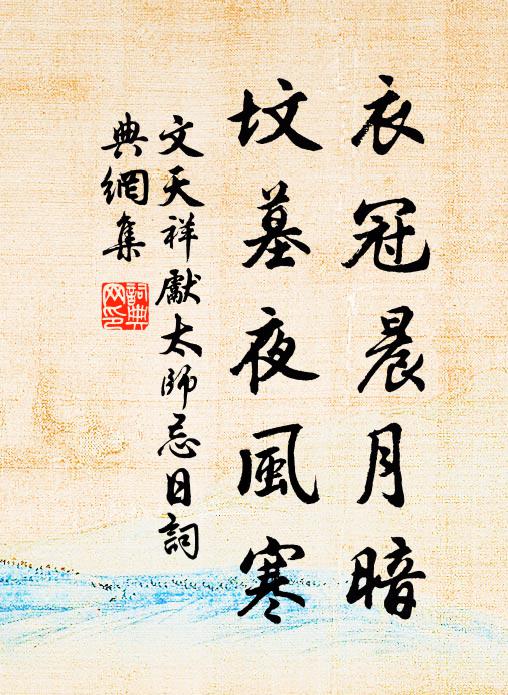 衣冠晨月暗
坟墓夜風寒
文天祥獻太師忌日詞
典網集
詞典网印